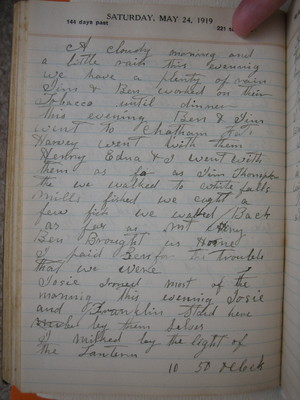 SATURDAY, MAY 24, 1919
144 days past
221
A Cloudy morning and
a little rain this evening
we have a plenty of rain
Jim & Ben worked on their
Tobacco until dinner
this evening Ben & Jim
went to Chatham
Harvey went with them
Henry Edna & I went with
them as far as Jim
the we walked to white falls
Mills fished we caght a
few fish we walked Back
as far as Mr
Ben Brought us Home
I paid Ben for the trouble
that we were
Josie Ironed most of the
morning this evening Josie
and Franklin Stded here
by them Selves
I milked by the light of
the Lantern
10 50 Oclock